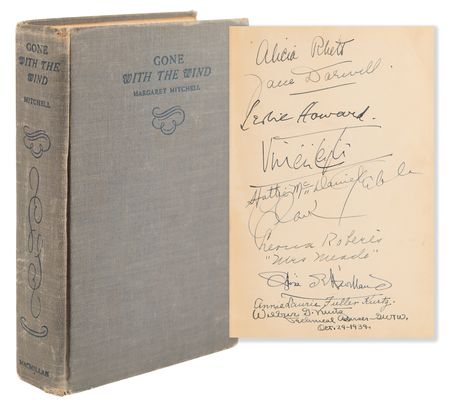 GONE
WITH THE
WIND
MITCHELL
MACMILLAN
GONE
WITH THE WIND
MARGARET MITCHELL
Alicia Rhett
Jane Darwell
Leslie Howard.
Vivien Leigh
Hattie McDaniel
Clark Gable
Leona Roberts
"Mrs Meade"
Olivia de Havilland
Annie Laurie Fuller Kurtz.
Wilbur G. Kurtz
Technical Adviser - GWTW.
Oct. 29-1939.